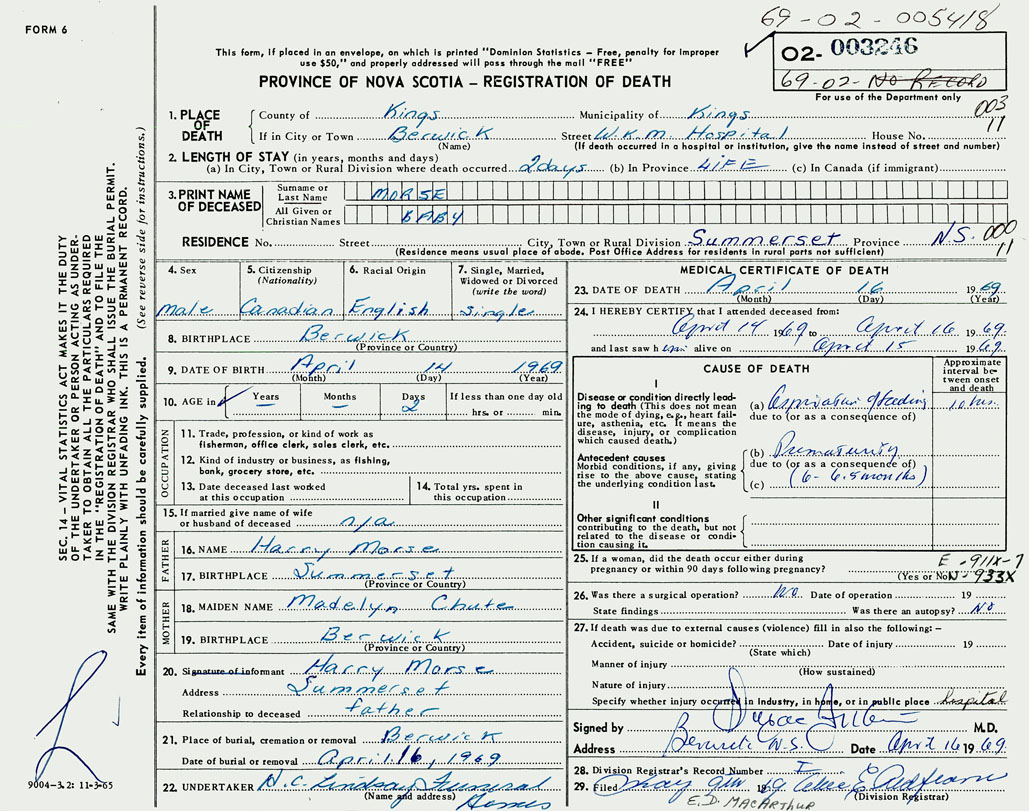 FORM 6
69-02-005418
This form, if placed in an envelope, on which is printed "Dominion Statistics – Free, penalty for improper
use $50," and properly addressed will pass through the mail "FREE"
02- 003246
69-02-No Record
PROVINCE OF NOVA SCOTIA – REGISTRATION OF DEATH
For use of the Department only
003
11
1. PLACE OF DEATH
County of Kings Municipality of Kings
If in City or Town Berwick Street W.K.M. Hospital House No.
(Name) (If death occurred in a hospital or institution, give the name instead of street and number)
2. LENGTH OF STAY (in years, months and days)
(a) In City, Town or Rural Division where death occurred 2 days (b) In Province LIFE (c) In Canada (if immigrant)
3. PRINT NAME OF DECEASED
Surname or Last Name MORSE
All Given or Christian Names BABY
RESIDENCE No. Street City, Town or Rural Division Summerset Province N.S. 000
11
(Residence means usual place of abode. Post Office Address for residents in rural parts not sufficient)
4. Sex
male
5. Citizenship
(Nationality)
Canadian
6. Racial Origin
English
7. Single, Married,
Widowed or Divorced
(write the word)
single
8. BIRTHPLACE Berwick
(Province or Country)
9. DATE OF BIRTH April 14 1969
(Month) (Day) (Year)
10. AGE in Years – Months – Days 2 If less than one day old
hrs. or min.
OCCUPATION
11. Trade, profession, or kind of work as
fisherman, office clerk, sales clerk, etc.
12. Kind of industry or business, as fishing,
bank, grocery store, etc.
13. Date deceased last worked
at this occupation
14. Total yrs. spent in
this occupation
15. If married give name of wife
or husband of deceased n/a
FATHER
16. NAME Harry Morse
17. BIRTHPLACE Summerset
(Province or Country)
MOTHER
18. MAIDEN NAME Madelyn Chute
19. BIRTHPLACE Berwick
(Province or Country)
20. Signature of informant Harry Morse
Address Summerset
Relationship to deceased father
21. Place of burial, cremation or removal Berwick
Date of burial or removal April 16, 1969
22. UNDERTAKER H.C. Lindsay Funeral
(Name and address) Homes
MEDICAL CERTIFICATE OF DEATH
23. DATE OF DEATH April 16 1969
(Month) (Day) (Year)
24. I HEREBY CERTIFY that I attended deceased from:
April 14 1969 to April 16 1969
and last saw him alive on April 15 1969
CAUSE OF DEATH
Approximate
interval be-
tween onset
and death
I
Disease or condition directly lead-
ing to death (This does not
mean the mode of dying, e.g., heart fail-
ure, asthenia, etc. It means the
disease, injury, or complication
which caused death.)
(a) Aspiration of feeding 10 hrs.
due to (or as a consequence of)
Antecedent causes
Morbid conditions, if any, giving
rise to the above cause, stating
the underlying condition last.
(b) Prematurity
due to (or as a consequence of)
(c) (6 - 6.5 months)
II
Other significant conditions
contributing to the death, but not
related to the disease or condi-
tion causing it.
25. If a woman, did the death occur either during
pregnancy or within 90 days following pregnancy?
(Yes or No)
E-911X-7
N-933X
26. Was there a surgical operation? No Date of operation 19
State findings Was there an autopsy? No
27. If death was due to external causes (violence) fill in also the following: –
Accident, suicide or homicide? Date of injury 19
(State which)
Manner of injury
(How sustained)
Nature of injury
Specify whether injury occurred in Industry, in home, or in public place hospital
Signed by M.D.
Address Berwick N.S. Date April 16 1969.
28. Division Registrar's Record Number
29. Filed May 9th 1969
(Division Registrar)
E.D. MACARTHUR
SEC. 14 – VITAL STATISTICS ACT MAKES IT THE DUTY
OF THE UNDERTAKER OR PERSON ACTING AS UNDER-
TAKER TO OBTAIN ALL THE PARTICULARS REQUIRED
IN THE "REGISTRATION OF DEATH" AND TO FILE THE
SAME WITH THE DIVISION REGISTRAR WHO SHALL ISSUE THE BURIAL PERMIT.
WRITE PLAINLY WITH UNFADING INK. THIS IS A PERMANENT RECORD.
Every item of information should be carefully supplied. (See reverse side for instructions.)
9004-3.2: 11-3-65